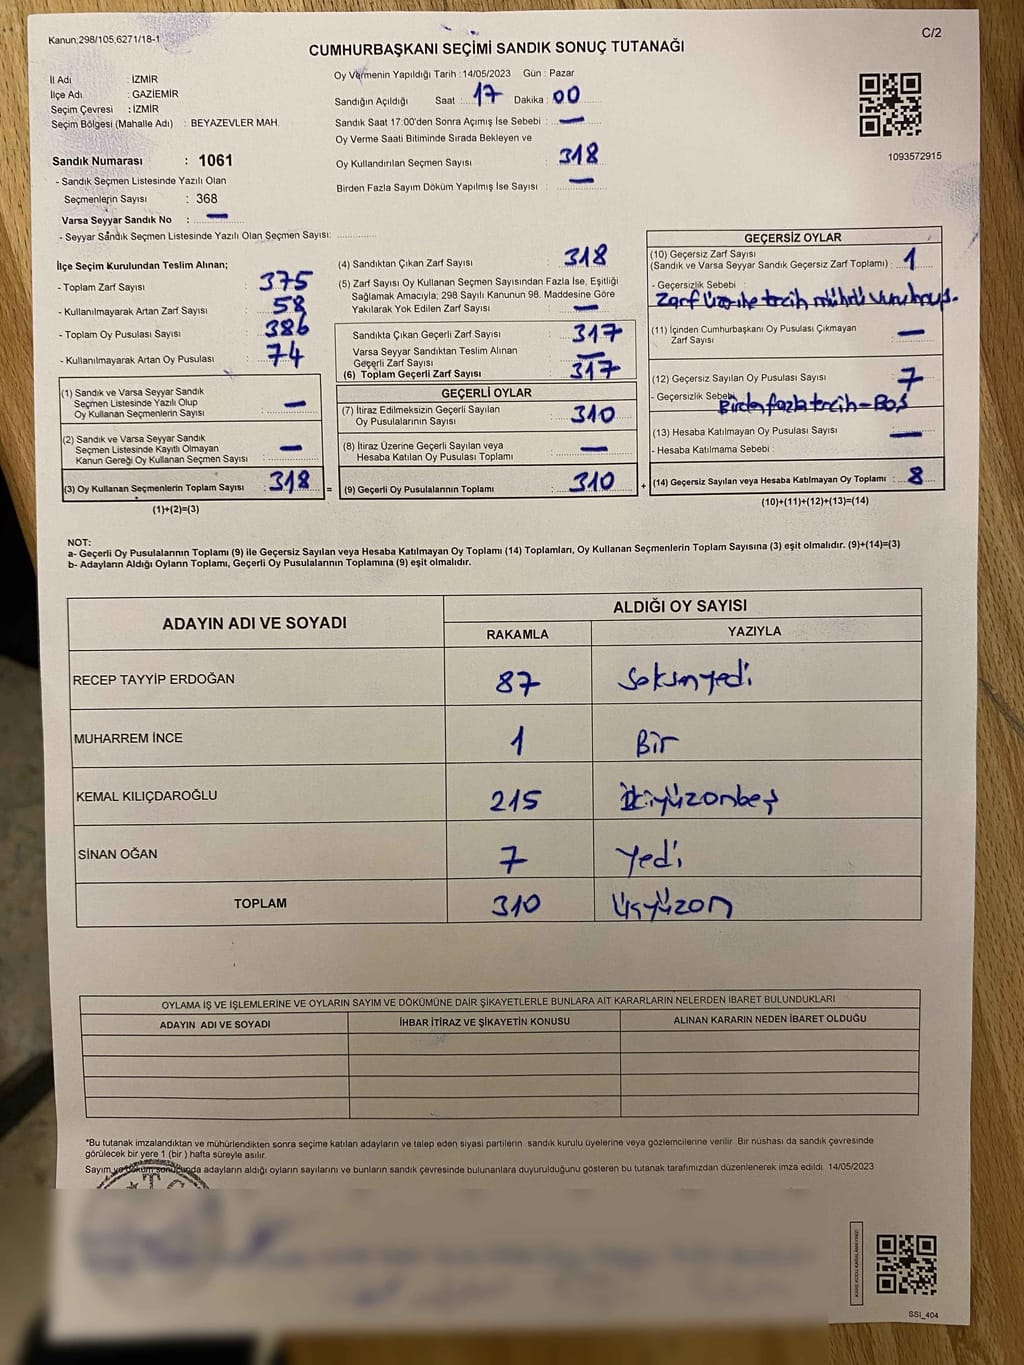 Kanun:298/105,6271/18-1
C/2
CUMHURBAŞKANI SEÇİMİ SANDIK SONUÇ TUTANAĞI
İl Adı : İZMİR
İlçe Adı : GAZİEMİR
Seçim Çevresi : İZMİR
Seçim Bölgesi (Mahalle Adı) : BEYAZEVLER MAH.
Sandık Numarası : 1061
- Sandık Seçmen Listesinde Yazılı Olan
Seçmenlerin Sayısı : 368
Varsa Seyyar Sandık No : —
- Seyyar Sandık Seçmen Listesinde Yazılı Olan Seçmen Sayısı: ............
Oy Vermenin Yapıldığı Tarih : 14/05/2023 Gün : Pazar
Sandığın Açıldığı Saat : 17 Dakika : 00
Sandık Saat 17:00'den Sonra Açımış İse Sebebi : —
Oy Verme Saati Bitiminde Sırada Bekleyen ve
Oy Kullandırılan Seçmen Sayısı : 318
Birden Fazla Sayım Döküm Yapılmış İse Sayısı : —
1093572915
İlçe Seçim Kurulundan Teslim Alınan;
- Toplam Zarf Sayısı : 375
- Kullanılmayarak Artan Zarf Sayısı : 58
- Toplam Oy Pusulası Sayısı : 386
- Kullanılmayarak Artan Oy Pusulası : 74
(1) Sandık ve Varsa Seyyar Sandık
Seçmen Listesinde Yazılı Olup
Oy Kullanan Seçmenlerin Sayısı : —
(2) Sandık ve Varsa Seyyar Sandık
Seçmen Listesinde Kayıtlı Olmayan
Kanun Gereği Oy Kullanan Seçmen Sayısı : —
(3) Oy Kullanan Seçmenlerin Toplam Sayısı : 318
(1)+(2)=(3)
(4) Sandıktan Çıkan Zarf Sayısı : 318
(5) Zarf Sayısı Oy Kullanan Seçmen Sayısından Fazla İse, Eşitliği
Sağlamak Amacıyla; 298 Sayılı Kanunun 98. Maddesine Göre
Yakılarak Yok Edilen Zarf Sayısı : —
Sandıkta Çıkan Geçerli Zarf Sayısı : 317
Varsa Seyyar Sandıktan Teslim Alınan
Geçerli Zarf Sayısı : —
(6) Toplam Geçerli Zarf Sayısı : 317
GEÇERLİ OYLAR
(7) İtiraz Edilmeksizin Geçerli Sayılan
Oy Pusulalarının Sayısı : 310
(8) İtiraz Üzerine Geçerli Sayılan veya
Hesaba Katılan Oy Pusulası Toplamı : —
= (9) Geçerli Oy Pusulalarının Toplamı : 310
GEÇERSİZ OYLAR
(10) Geçersiz Zarf Sayısı
(Sandık ve Varsa Seyyar Sandık Geçersiz Zarf Toplamı) : 1
- Geçersizlik Sebebi :
Zarf üzerine tercih mührü vurulmuş.
(11) İçinden Cumhurbaşkanı Oy Pusulası Çıkmayan
Zarf Sayısı : —
(12) Geçersiz Sayılan Oy Pusulası Sayısı : 7
- Geçersizlik Sebebi Birden fazla tercih - Boş
(13) Hesaba Katılmayan Oy Pusulası Sayısı : —
- Hesaba Katılmama Sebebi :
+ (14) Geçersiz Sayılan veya Hesaba Katılmayan Oy Toplamı : 8
(10)+(11)+(12)+(13)=(14)
NOT:
a- Geçerli Oy Pusulalarının Toplamı (9) ile Geçersiz Sayılan veya Hesaba Katılmayan Oy Toplamı (14) Toplamları, Oy Kullanan Seçmenlerin Toplam Sayısına (3) eşit olmalıdır. (9)+(14)=(3)
b- Adayların Aldığı Oyların Toplamı, Geçerli Oy Pusulalarının Toplamına (9) eşit olmalıdır.
ADAYIN ADI VE SOYADI ALDIĞI OY SAYISI
RAKAMLA YAZIYLA
RECEP TAYYİP ERDOĞAN 87 Seksenyedi
MUHARREM İNCE 1 Bir
KEMAL KILIÇDAROĞLU 215 İkiyüzonbeş
SİNAN OĞAN 7 Yedi
TOPLAM 310 Üçyüzon
OYLAMA İŞ VE İŞLEMLERİNE VE OYLARIN SAYIM VE DÖKÜMÜNE DAİR ŞİKAYETLERLE BUNLARA AİT KARARLARIN NELERDEN İBARET BULUNDUKLARI
ADAYIN ADI VE SOYADI İHBAR İTİRAZ VE ŞİKAYETİN KONUSU ALINAN KARARIN NEDEN İBARET OLDUĞU
*Bu tutanak imzalandıktan ve mühürlendikten sonra seçime katılan adayların ve talep eden siyasi partilerin sandık kurulu üyelerine veya gözlemcilerine verilir. Bir nüshası da sandık çevresinde
görülecek bir yere 1 (bir) hafta süreyle asılır.
Sayım ve döküm sonucunda adayların aldığı oyların sayılarını ve bunların sandık çevresinde bulunanlara duyurulduğunu gösteren bu tutanak tarafımızdan düzenlenerek imza edildi. 14/05/2023
T.C.
SSİ_404